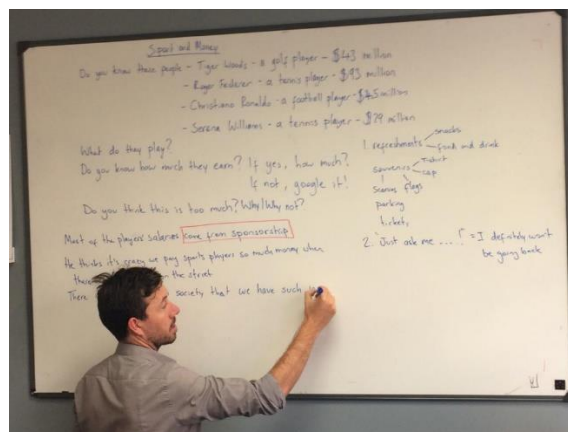 Sport and Money
Do you know these people - Tiger Woods - a golf player - $43 million
- Roger Federer - a tennis player - $93 million
- Christiano Ronaldo - a football player -
- Serena Williams - a tennis player - $29 million
What do they play?
Do you know how much they earn? If yes, how much?
If not, google it!
Do you think this is too much? Why/Why not?
Most of the players' salaries come from sponsorship
He thinks it's crazy we pay sports players so much money when
there the street
There society that we have such
1. refreshments
snacks
food and drink
souvenirs
T-shirt
cap
scarves flags
parking
tickets
2. "Just ask me ....!" = I definitely won't
be going back